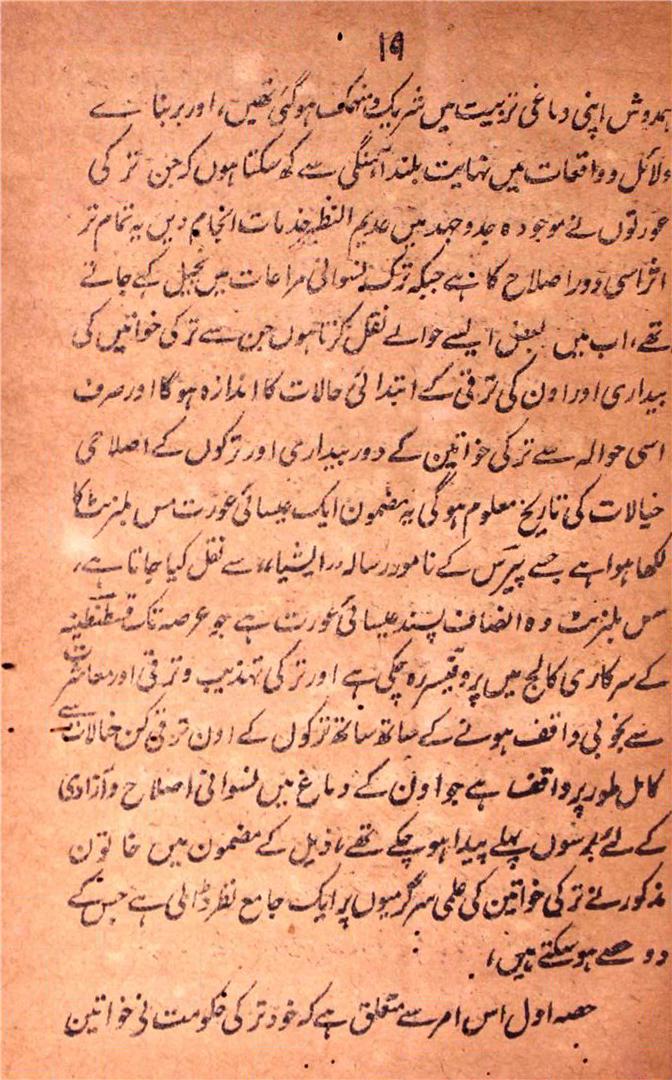 ۱۹
ہمدوش اپنی دماغی تربیت میں شریک و منہمک ہو گئی تھیں، اور بر بنائے
دلائل و واقعات میں نہایت بلند آہنگی سے کہہ سکتا ہوں کہ جن ترکی
عورتوں نے موجودہ جدوجہد میں عدیم النظیر خدمات انجام دیں یہ تمام تر
اثر اسی دور اصلاح کا ہے جبکہ ترک نسوانی مراعات میں بخیل کہے جاتے
تھے، اب میں بعض ایسے حوالے نقل کرتا ہوں جن سے ترکی خواتین کی
بیداری اور اون کی ترقی کے ابتدائی حالات کا اندازہ ہوگا اور صرف
اسی حوالہ سے ترکی خواتین کے دور بیداری اور ترکوں کے اصلاحی
خیالات کی تاریخ معلوم ہوگی یہ مضمون ایک عیسائی عورت مس بلزنٹ کا
لکھا ہوا ہے جسے پیرس کے نامور رسالہ "ایشیا" سے نقل کیا جاتا ہے،
مس بلزنٹ وہ انصاف پسند عیسائی عورت ہے جو عرصہ تک قسطنطنیہ
کے سرکاری کالج میں پروفیسر رہ چکی ہے اور ترکی تہذیب و ترقی اور معاشرت
سے بخوبی واقف ہونے کے ساتھ ساتھ ترکوں کے اون ترقی کن خیالات سے
کامل طور پر واقف ہے جو اون کے دماغ میں نسوانی اصلاح و آزادی
کے لئے برسوں پہلے پیدا ہو چکے تھے، ذیل کے مضمون میں خاتون
مذکور نے ترکی خواتین کی علمی سرگرمیوں پر ایک جامع نظر ڈالی ہے جس کے
دو حصے ہو سکتے ہیں،
حصہ اول اس امر سے متعلق ہے کہ خود ترکی حکومت نے خواتین